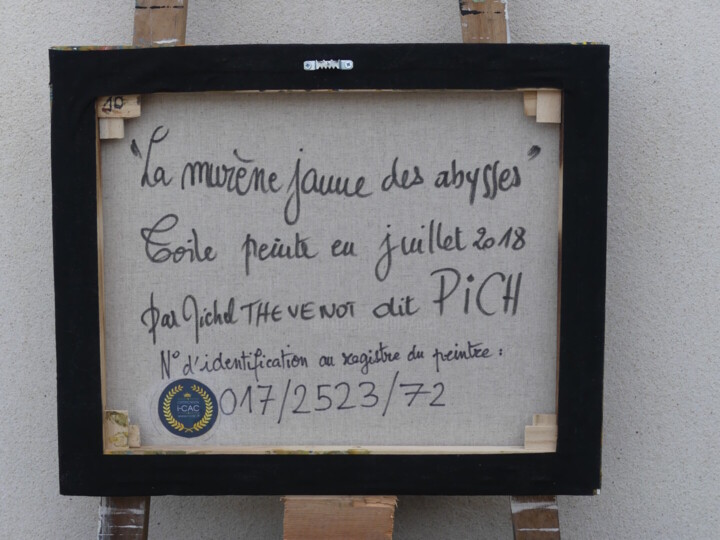 10
"La murène jaune des abysses"
Toile peinte en juillet 2018
par Michel THEVENOT dit PiCH
N° d'identification au registre du peintre :
I-CAC
017/2523/72